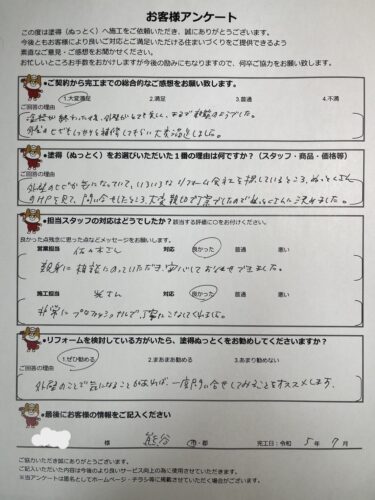 お客様アンケート
この度は塗得（ぬっとく）へ施工をご依頼いただき、誠にありがとうございます。
今後ともお客様により良いご対応とご満足いただける住まいづくりをご提供できるよう
素直なご意見・ご感想をお聞かせください。
お忙しいところお手数をおかけしますが今後の励みにもなりますので、何卒ご協力をお願い致します。
●ご契約から完工までの総合的なご感想をお願い致します。
1.大変満足 2.満足 3.普通 4.不満
ご回答の理由
塗装が終わった後、外壁がとても美しく、まるで新築のようでした。
外壁のヒビもしっかりと補修してもらい大変満足しました。
●塗得（ぬっとく）をお選びいただいた１番の理由は何ですか？（スタッフ・商品・価格等）
ご回答の理由
外壁のヒビが気になっていて、いろいろなリフォーム会社を探しているところ、ぬっとくさん
のHPを見て、問い合せしたところ大変親切で丁寧でしたのでぬっとくさんに決めました。
●担当スタッフの対応はどうでしたか？該当する評価に○をお付けください。
良かった点残念に思った点などメッセージをお願いします。
営業担当 佐々木さん 対応 良かった 普通 悪い
親身に相談にのっていただき、安心してお任せできました。
施工担当 さん 対応 良かった 普通 悪い
非常にプロフェッショナルで、丁寧にこなしてくれました。
●リフォームを検討している方がいたら、塗得ぬっとくをお勧めしてくださいますか？
1.ぜひ勧める 2.まあまあ勧める 3.あまり勧めない
ご回答の理由
外壁のことで気になることがあれば、一度問い合せしてみることをオススメします。
●最後にお客様の情報をご記入ください
様 熊谷 市・郡 完工日：令和 5年 9月
ご協力いただき誠にありがとうございます。
ご記入いただいた内容は今後のより良いサービス向上の為に使用させていただきます。
※当アンケートは匿名としてホームページ・チラシ等に掲載させていただく場合がございます。